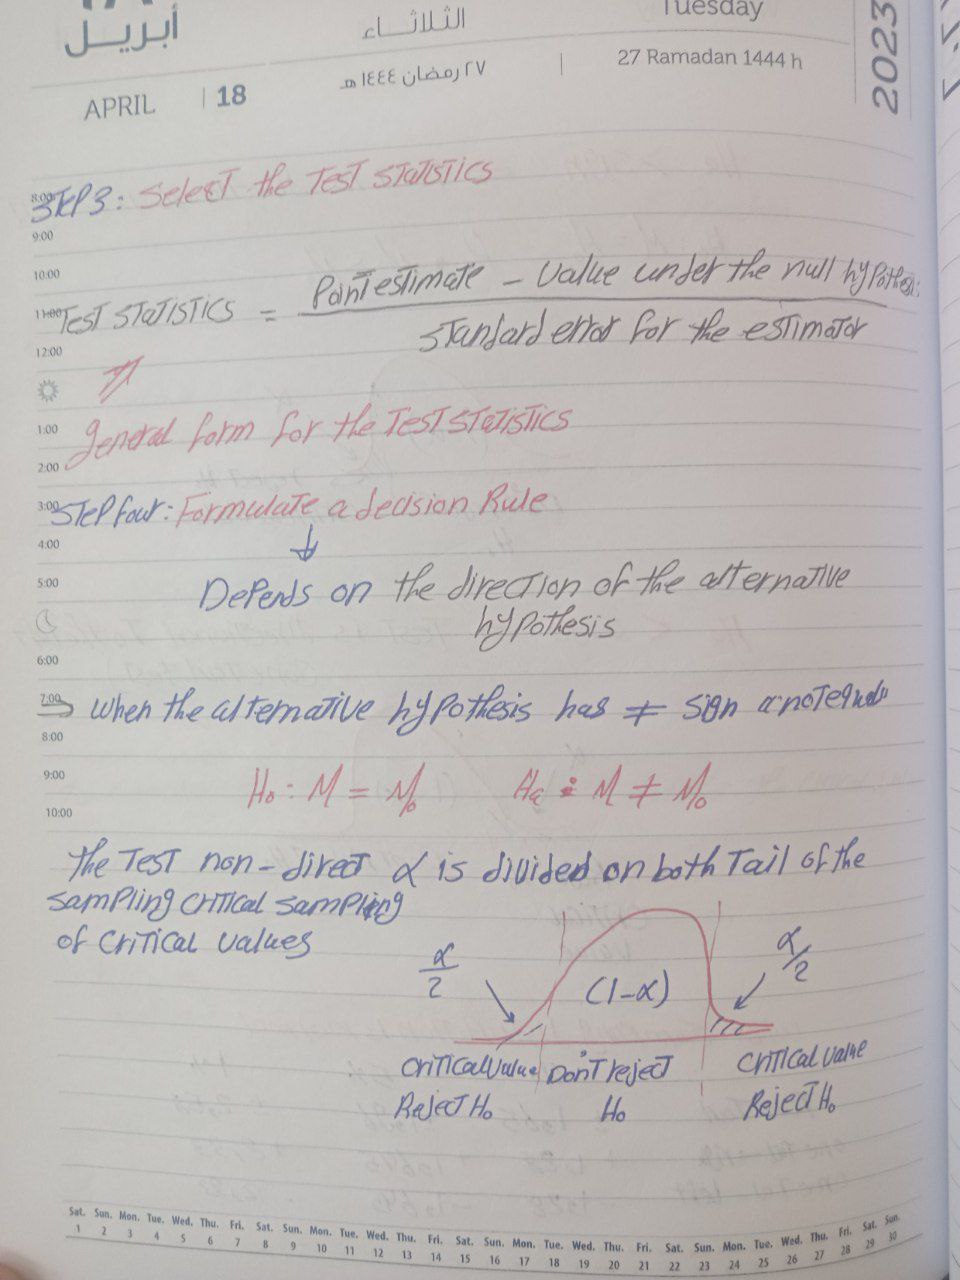 أبريل
الثلاثاء
Tuesday
2023
APRIL | 18
٢٧ رمضان ١٤٤٤ هـ
27 Ramadan 1444 h
8:00
STEP3: Select the Test statistics
9:00
10:00
Point estimate - value under the null hypothesis
11:00
Test statistics =
standard error for the estimator
12:00
1:00
general form for the Test statistics
2:00
3:00
STEP four: Formulate a decision Rule
4:00
5:00
Depends on the direction of the alternative
hypothesis
6:00
7:00
When the alternative hypothesis has ≠ sign
8:00
9:00
H₀ : M = M₀ Ha : M ≠ M₀
10:00
the Test non-direct α is divided on both Tail of the
sampling critical sampling
of critical values
α/2
(1-α)
α/2
critical value Don't reject critical value
Reject H₀ H₀ Reject H₀
Sat. Sun. Mon. Tue. Wed. Thu. Fri. Sat. Sun. Mon. Tue. Wed. Thu. Fri. Sat. Sun. Mon. Tue. Wed. Thu. Fri. Sat. Sun. Mon. Tue. Wed. Thu. Fri. Sat. Sun.
1 2 3 4 5 6 7 8 9 10 11 12 13 14 15 16 17 18 19 20 21 22 23 24 25 26 27 28 29 30